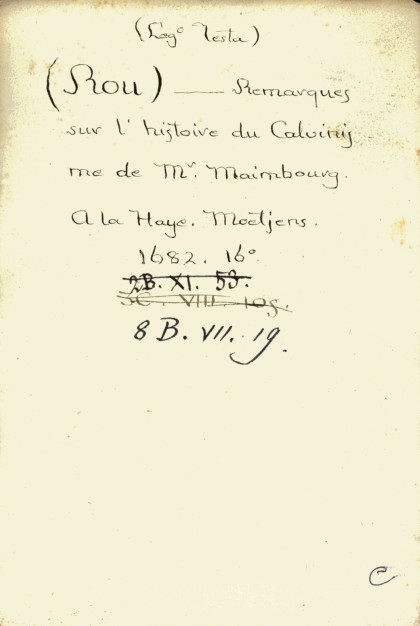 (Leg.º Testa)
(Rou) — Remarques
sur l' histoire du Calvinis
me de Mr. Maimbourg.
A la Haye. Moetjens.
1682. 16º
2B. XI. 53.
3C. VIII. 109.
8 B. VII. 19.
C